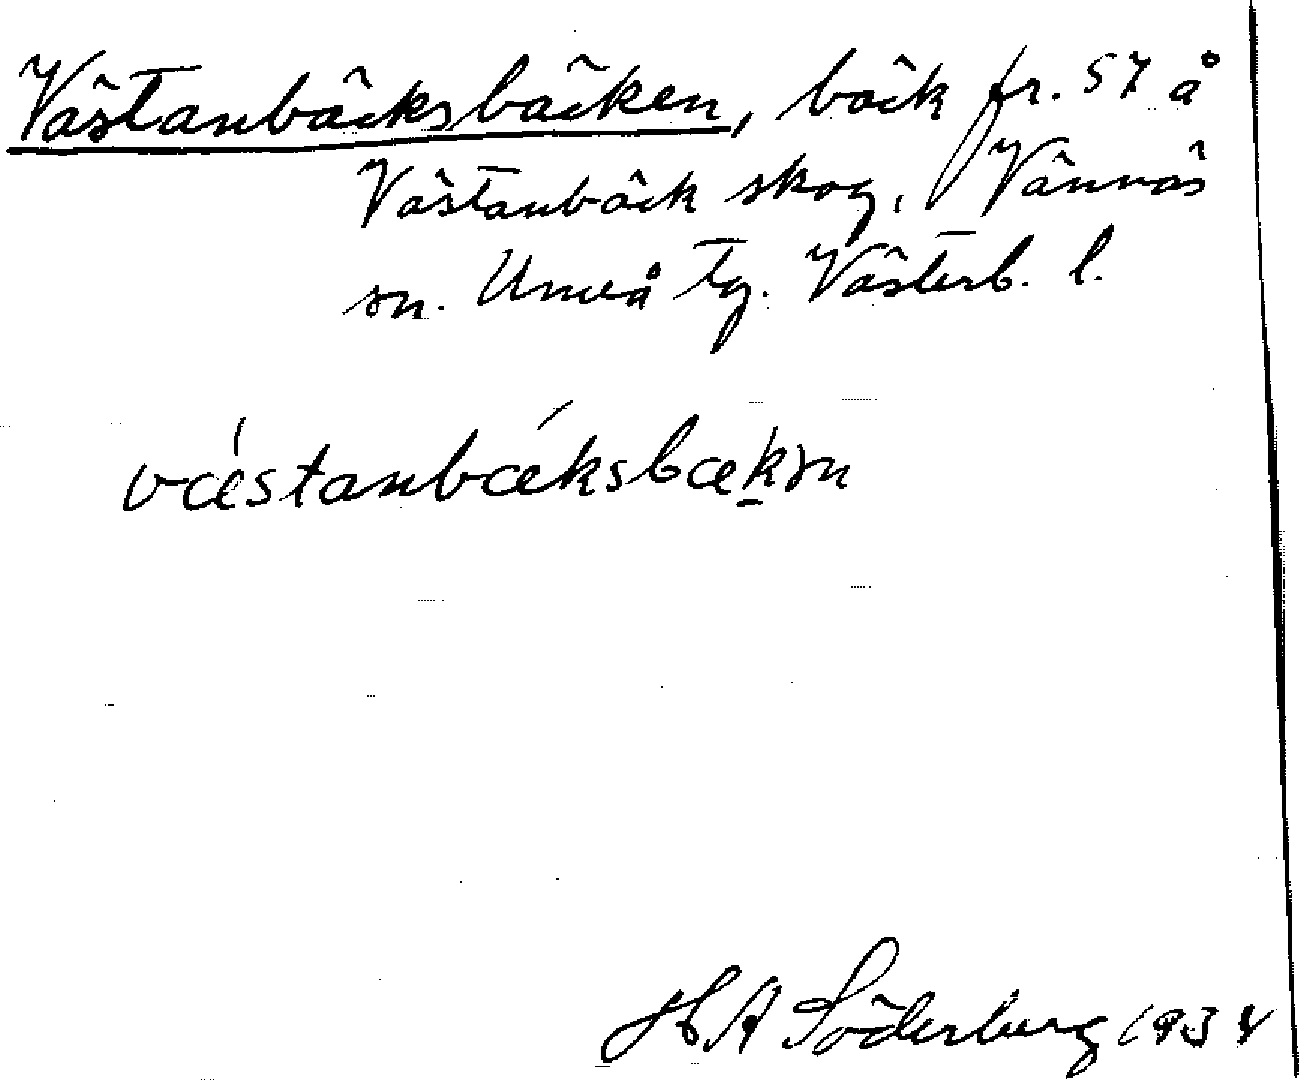 Västanbäcksbäcken, bäck fr. 57 å
Västanbäck skog, Vännäs
sn. Umeå tg. Västerb. l.
vǽstanbǽksbæk̠ən
H A Söderberg 1934